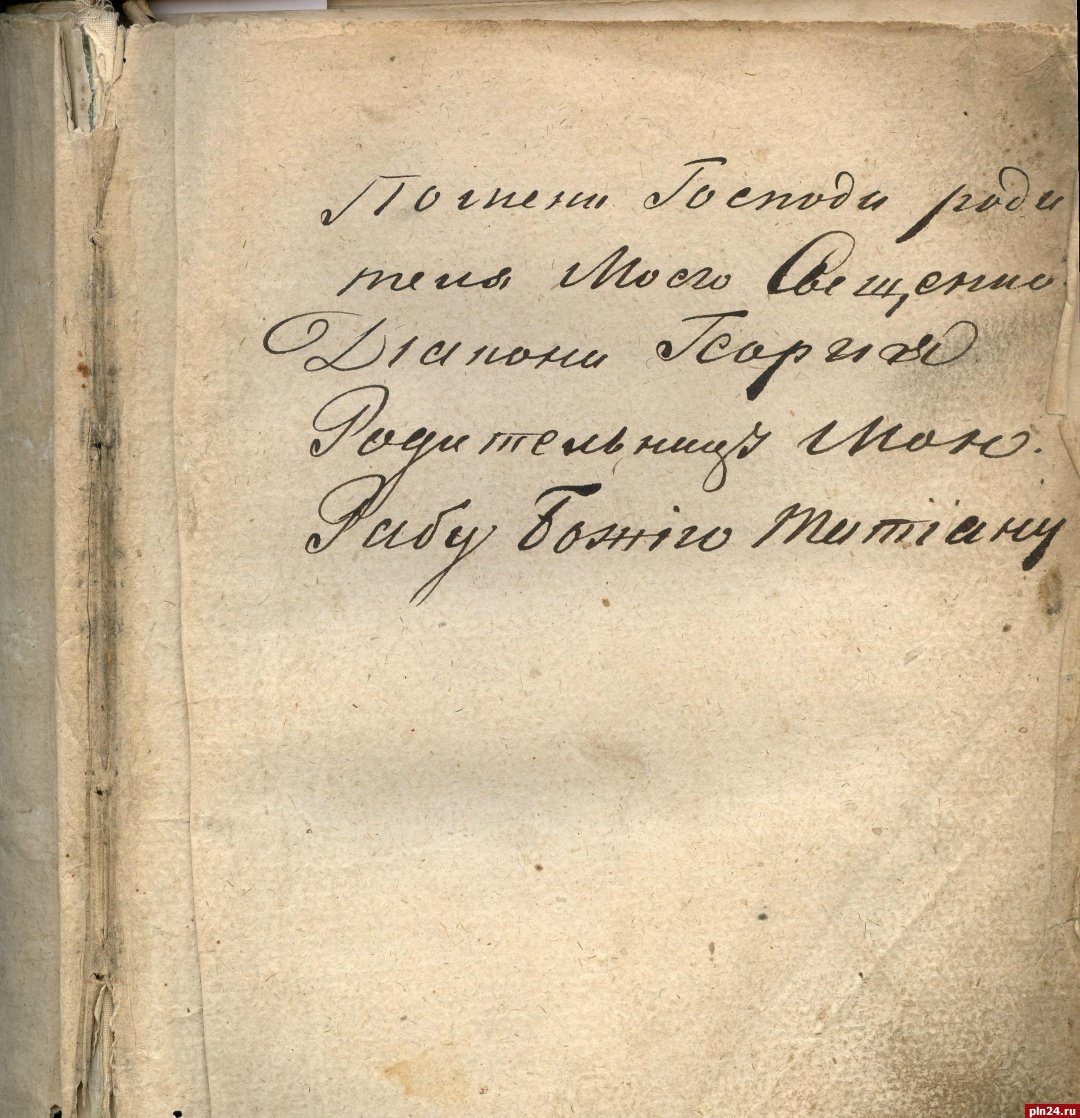 Помени Господи роди
теля Моего Свещенно
Діакона Георгия
Родительницъ Мою.
Рабу Божіго Татіану
pln24.ru